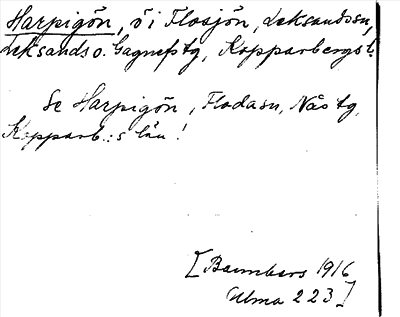 Harpigön, ö i Flosjön, Leksandssn,
Leksands o. Gagnefs tg, Kopparbergs l.
Se Harpigön, Flodasn, Nås tg,
Kopparb.:s län!
[Baumbers 1916
Ulma 223]